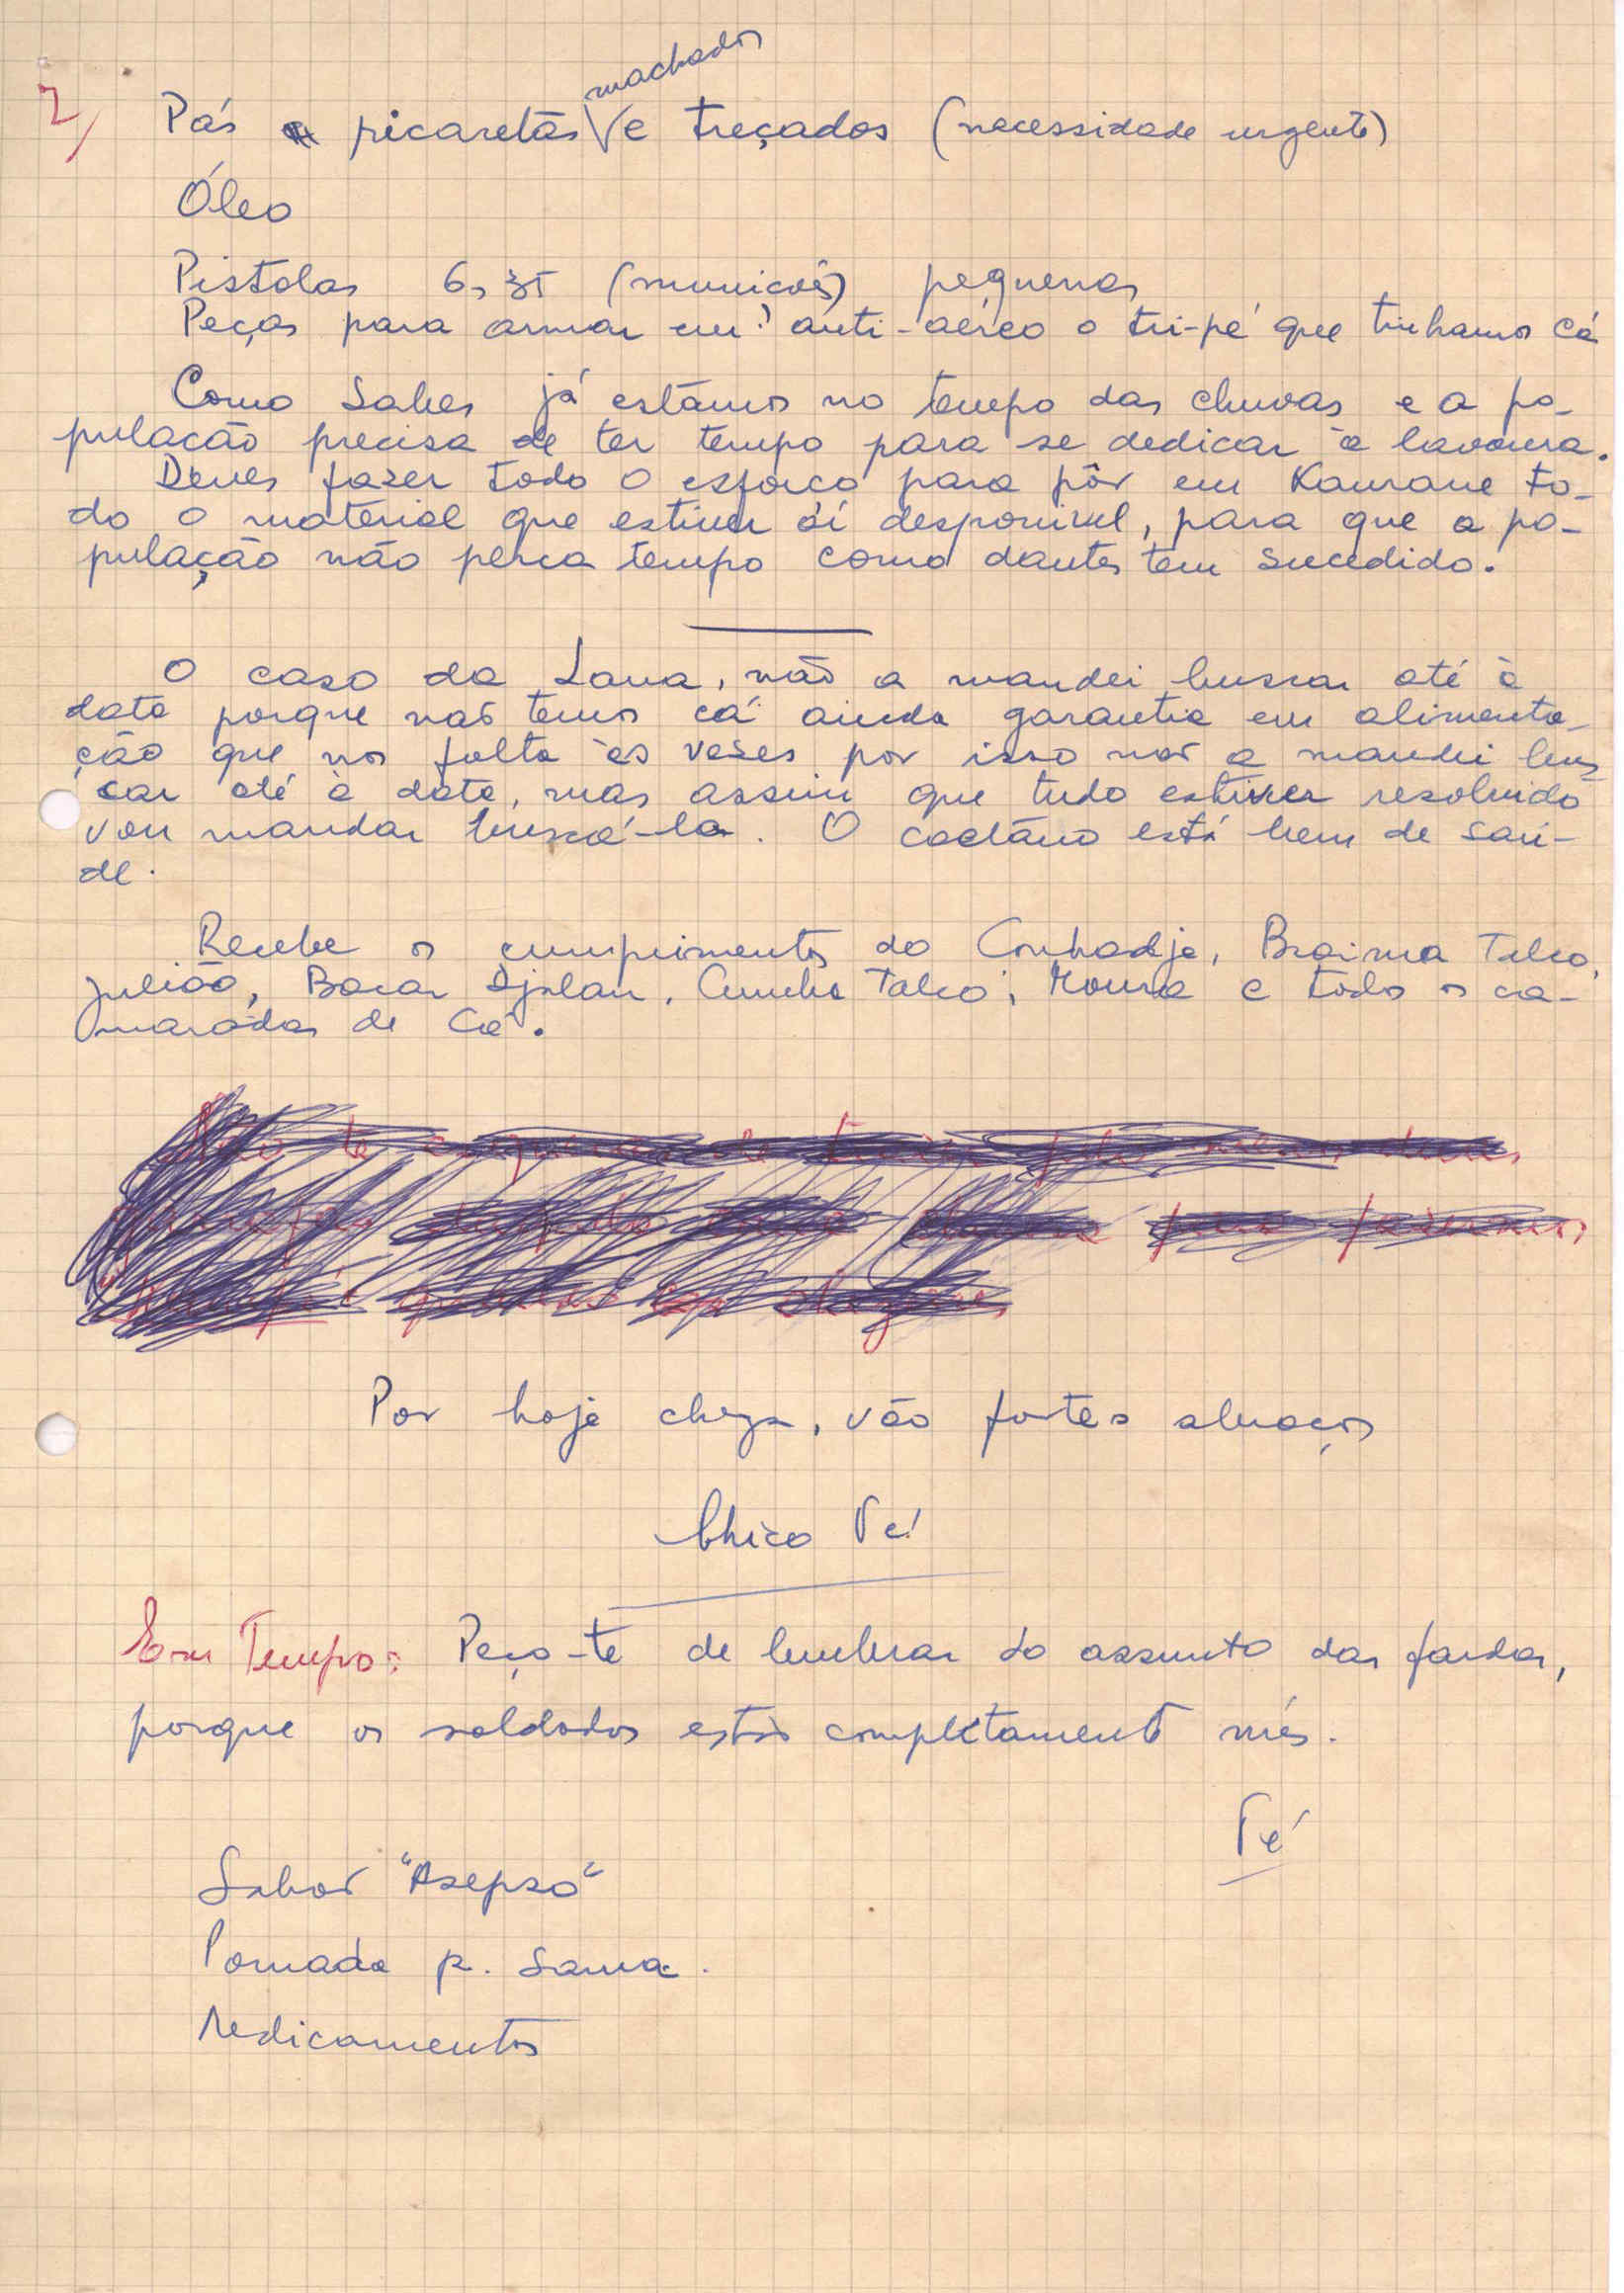 2)
machados
Pás picaretas e treçados (necessidade urgente)
Óleo
Pistolas 6,35 (munições) pequenas
Peças para armar em anti-aéreo o tri-pé que tinhamos cá
Como sabes já estâmos no tempo das chuvas e a po-
pulacão precisa de ter tempo para se dedicar à lavoura.
Deves fazer todo o esforço para pôr em Kaurane to-
do o material que estiver aí desponivel, para que a po-
pulação não perca tempo como dantes tem sucedido.
O caso da Lana, não a mandei buscar até à
data porque nós temos cá ainda garantia em alimenta-
ção que nos falta às vezes por isso não a mandei bus
car até à data, mas assim que tudo estiver resolvido
vou mandar buscá-la. O caetâno está bem de saú-
de.
Recebe os cumprimentos do Conhadje, Braima Talco,
Julião, Bacar Djalau, Cumba Talco, Moura e todos os ca-
maradas de Cá.
Não te
para fazermos
Por hoje chega, vão fortes abraços
Chico Té
Em Tempo: Peço-te de lembrar do assunto das fardas,
porque os soldados estão completamente nús.
Té
Sabão "Asepso"
Pomada p. sarna.
Medicamentos